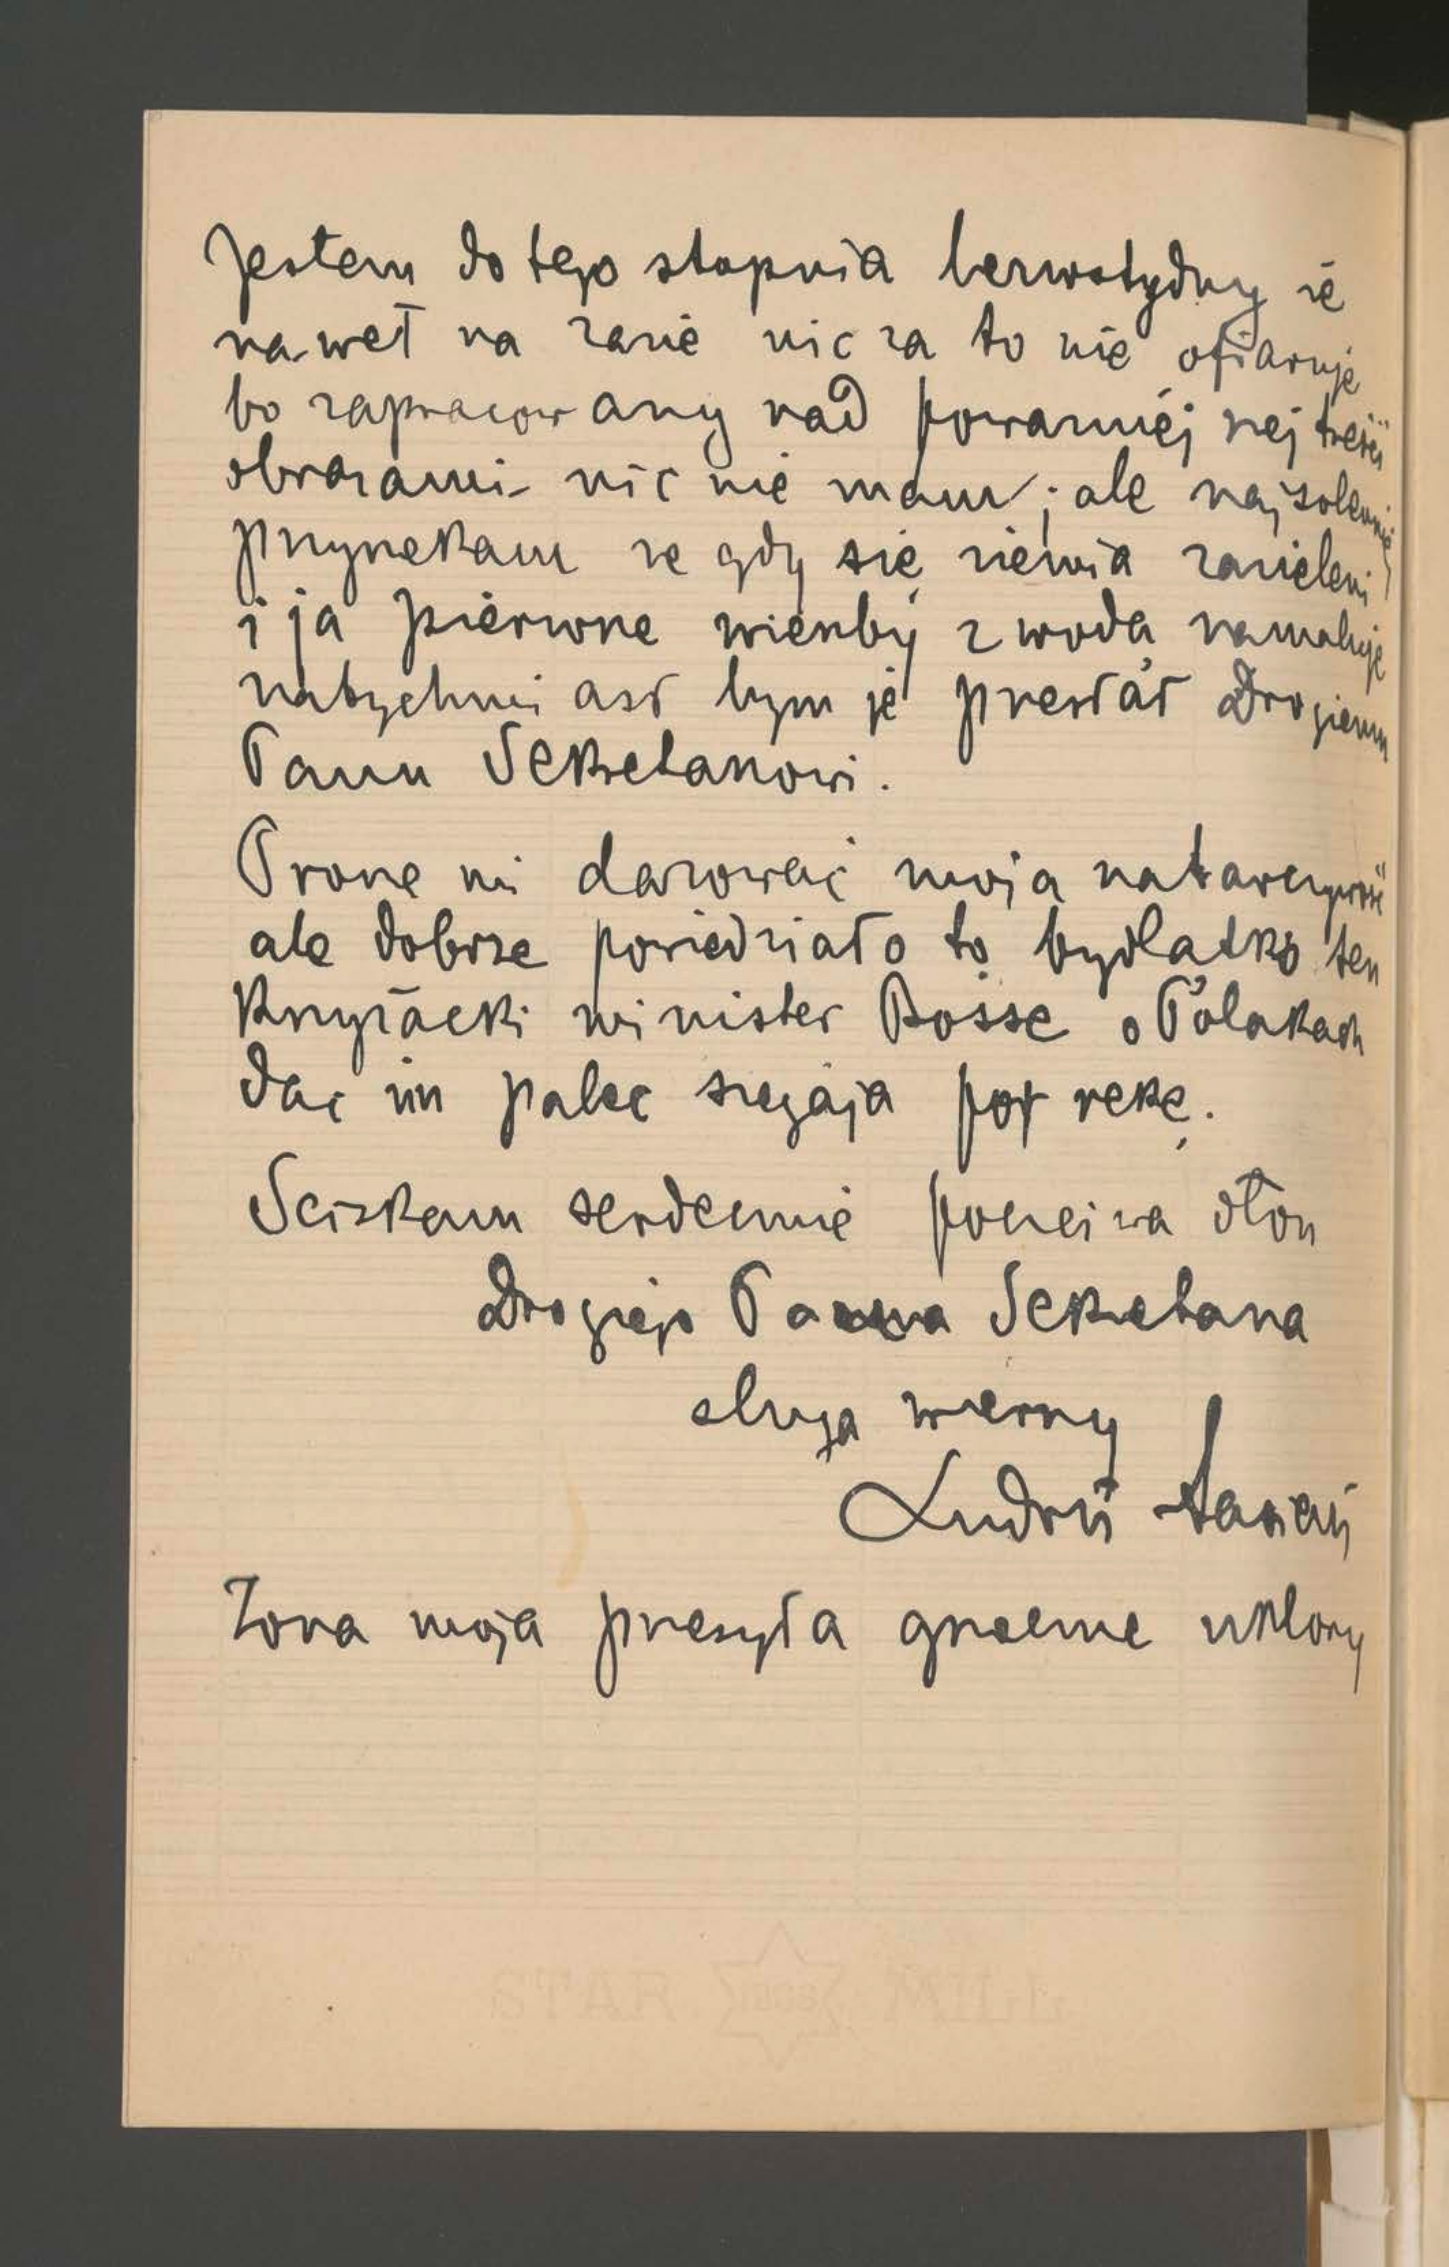 Jestem do tego stopnia bezwstydny że
nawet na razie nic za to nie ofiaruję
bo zapracowany nad poważniejszej treści
obrazami nic nie mam; ale najsolenniej
przyrzekam że gdy się ziemia zazieleni
i ja pierwsze wierzby z wodą namaluję
natychmiast bym je przesłał Drogiemu
Panu Sekretarzowi.
Proszę mi darować moją natarczywość
ale dobrze powiedziało to bydlątko ten
Krzyżacki minister Bosse o Polakach
dać im palec sięgają po rękę.
Sciskam serdecznie poczciwą dłoń
Drogiego Pana Sekretarza
sługa wierny
Ludwik Stasiak
Żona moja przesyła grzeczne ukłony
STAR MILL